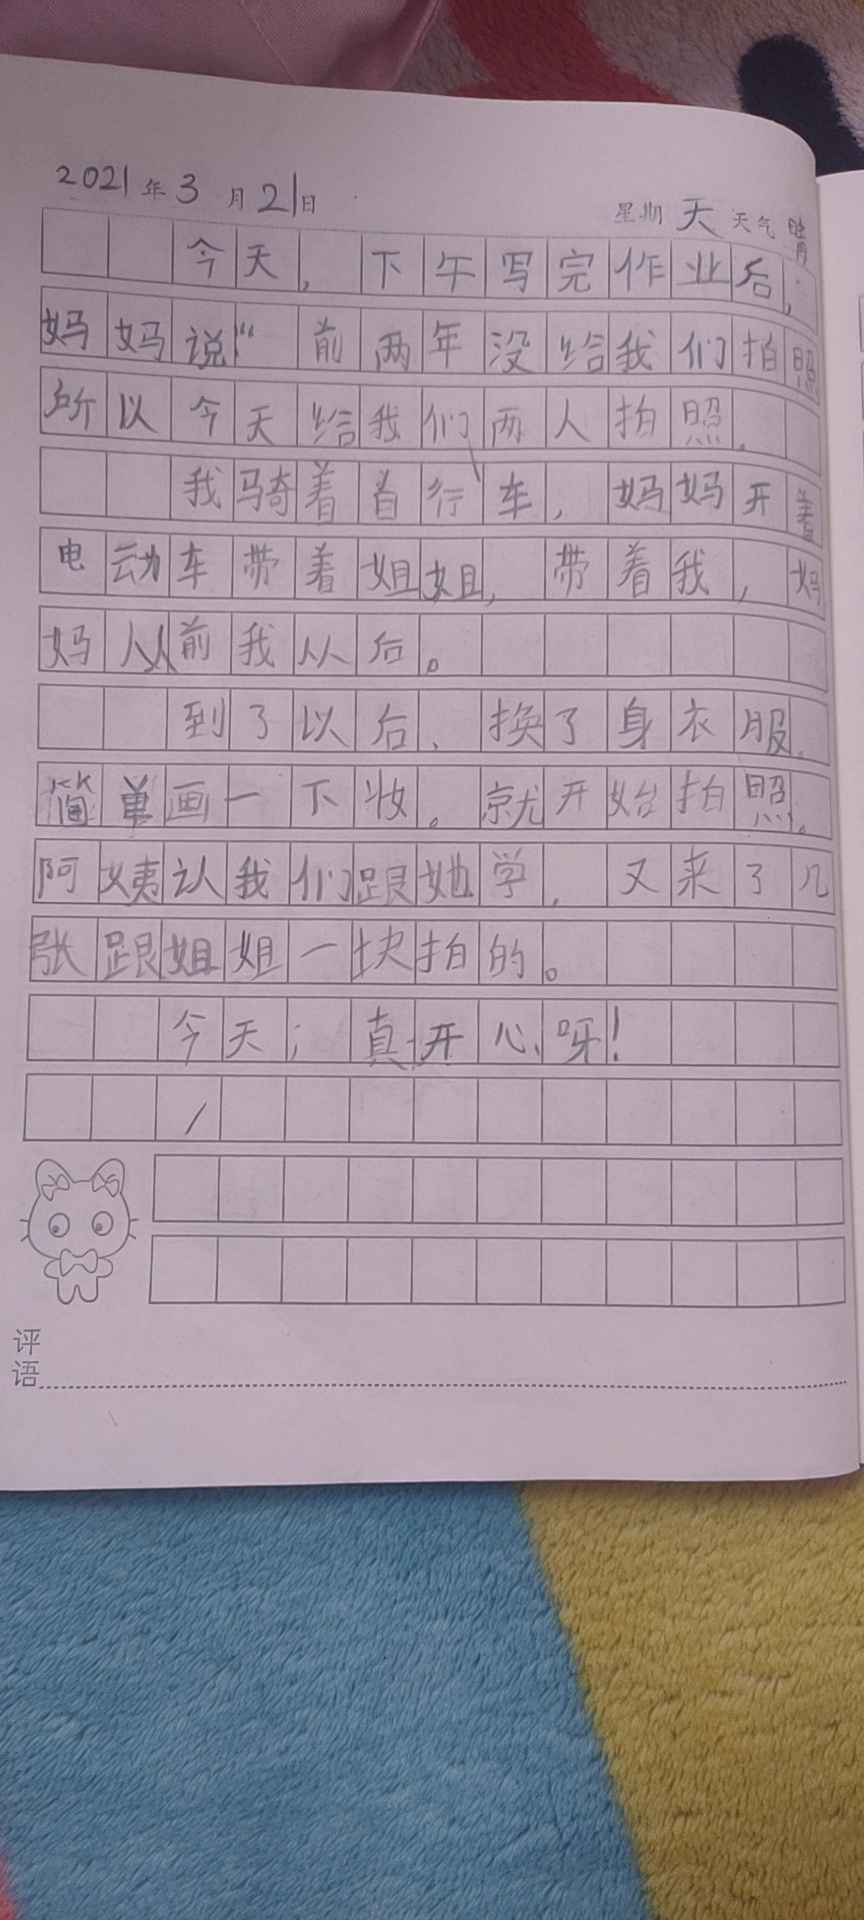 2021年3月21日 星期天 天气晴
今天，下午写完作业后，
妈妈说“前两年没给我们拍照
所以今天给我们两人拍照。
我骑着自行车，妈妈开着
电动车带着姐姐，带着我，妈
妈从前我从后。
到了以后、换了身衣服。
简单画一下妆。就开始拍照。
阿姨认我们跟她学，又来了几
张跟姐姐一块拍的。
今天；真开心呀！
评
语